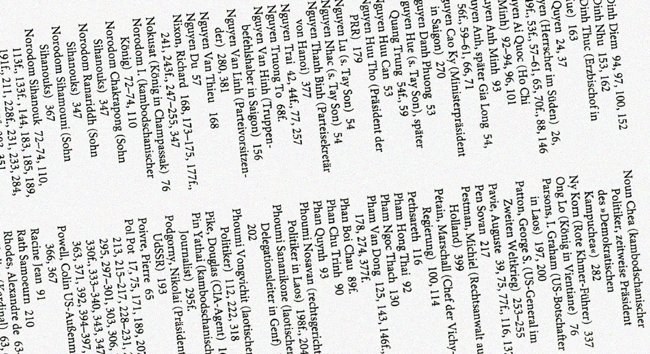 Dinh Diem 94, 97, 100, 152
Dinh Nhu 153, 162
Dinh Thuc (Erzbischof in
163
Quyen 24, 37
(Herrscher im Süden) 26,
53f., 57–61, 65, 70f., 88, 146
Ai Quoc (Ho Chi
Minh) 92–94, 96, 101
Anh Minh 93
Anh, später Gia Long 54,
56f., 59–61, 66, 71
Cao Ky (Ministerpräsident
in Saigon) 270
Danh Phuong 53
Hue (s. Tay Son), später
Quang Trung 54f., 59
Huu Can 53
Nguyen Huu Tho (Präsident der
PRR) 179
Nguyen Lu (s. Tay Son) 54
Nguyen Nhac (s. Tay Son) 54
Nguyen Thanh Binh (Parteisekretär
von Hanoi) 377
Nguyen Trai 42, 44f., 77, 257
Nguyen Truong To 68f.
Nguyen Van Hinh (Truppen-
befehlshaber in Saigon) 156
Nguyen Van Linh (Parteivorsitzen-
der) 280, 381
Nguyen Van Thieu 168
Nguyen Du 57
Nixon, Richard 168, 173–175, 177f.,
241, 243f., 247–255, 347
Nokusat (König in Champassak) 76
Norodom I. (kambodschanischer
König) 72–74, 110
Norodom Chakrapong (Sohn
Sihanouks) 347
Norodom Ranariddh (Sohn
Sihanouks) 347
Norodom Sihamouni (Sohn
Sihanouks) 367
Norodom Sihanouk 72–74, 110,
113f., 133f., 144, 183, 185, 189,
191f., 211, 228f., 231, 233, 284,
Noun Chea (kambodschanischer
Politiker, zeitweise Präsident
des »Demokratischen
Kampuchea«) 282
Ny Korm (Rote Khmer-Führer) 337
Ong Lo (König in Vientiane) 76
Parsons, J. Graham (US-Botschafter
in Laos) 197, 200
Patton, George S. (US-General im
Zweiten Weltkrieg) 253–255
Pavie, Auguste 39, 75, 77f., 116,
Pen Sovan 217
Pestman, Michiel (Rechtsanwalt
Holland) 399
Pétain, Marschall (Chef der Vichy-
Regierung) 100, 114
Pethsareth 116
Pham Hong Thai 92
Pham Ngoc Thach 130
Pham Van Dong 125, 143, 146f.,
178, 274, 377f.
Phan Boi Chau 89f.
Phan Chu Trinh 90
Phan Quynh 93
Phoumi Nosavan (rechtsgericht
Politiker in Laos) 198f.,
Phoumi Sananikone (laotischer
Delegationsleiter in Genf)
201
Phoumi Vongvichit (laotischer
Politiker) 112, 222, 318
Pike, Douglas (CIA-Agent)
Pin Yathai (kambodschanischer
Journalist) 295f.
Podgorny, Nikolai (Präsident
UdSSR) 193
Poivre, Pierre 65
Pol Pot 17, 75, 171, 189,
213, 215–217, 228–231,
295, 297–301, 303, 306,
330f., 333–340, 343,
363, 371, 392, 394–397,
Powell, Colin US-Außenm
366, 367
Racine Jean 91
Rath Samoeum 210
Rhodes, Alexandre de 63,